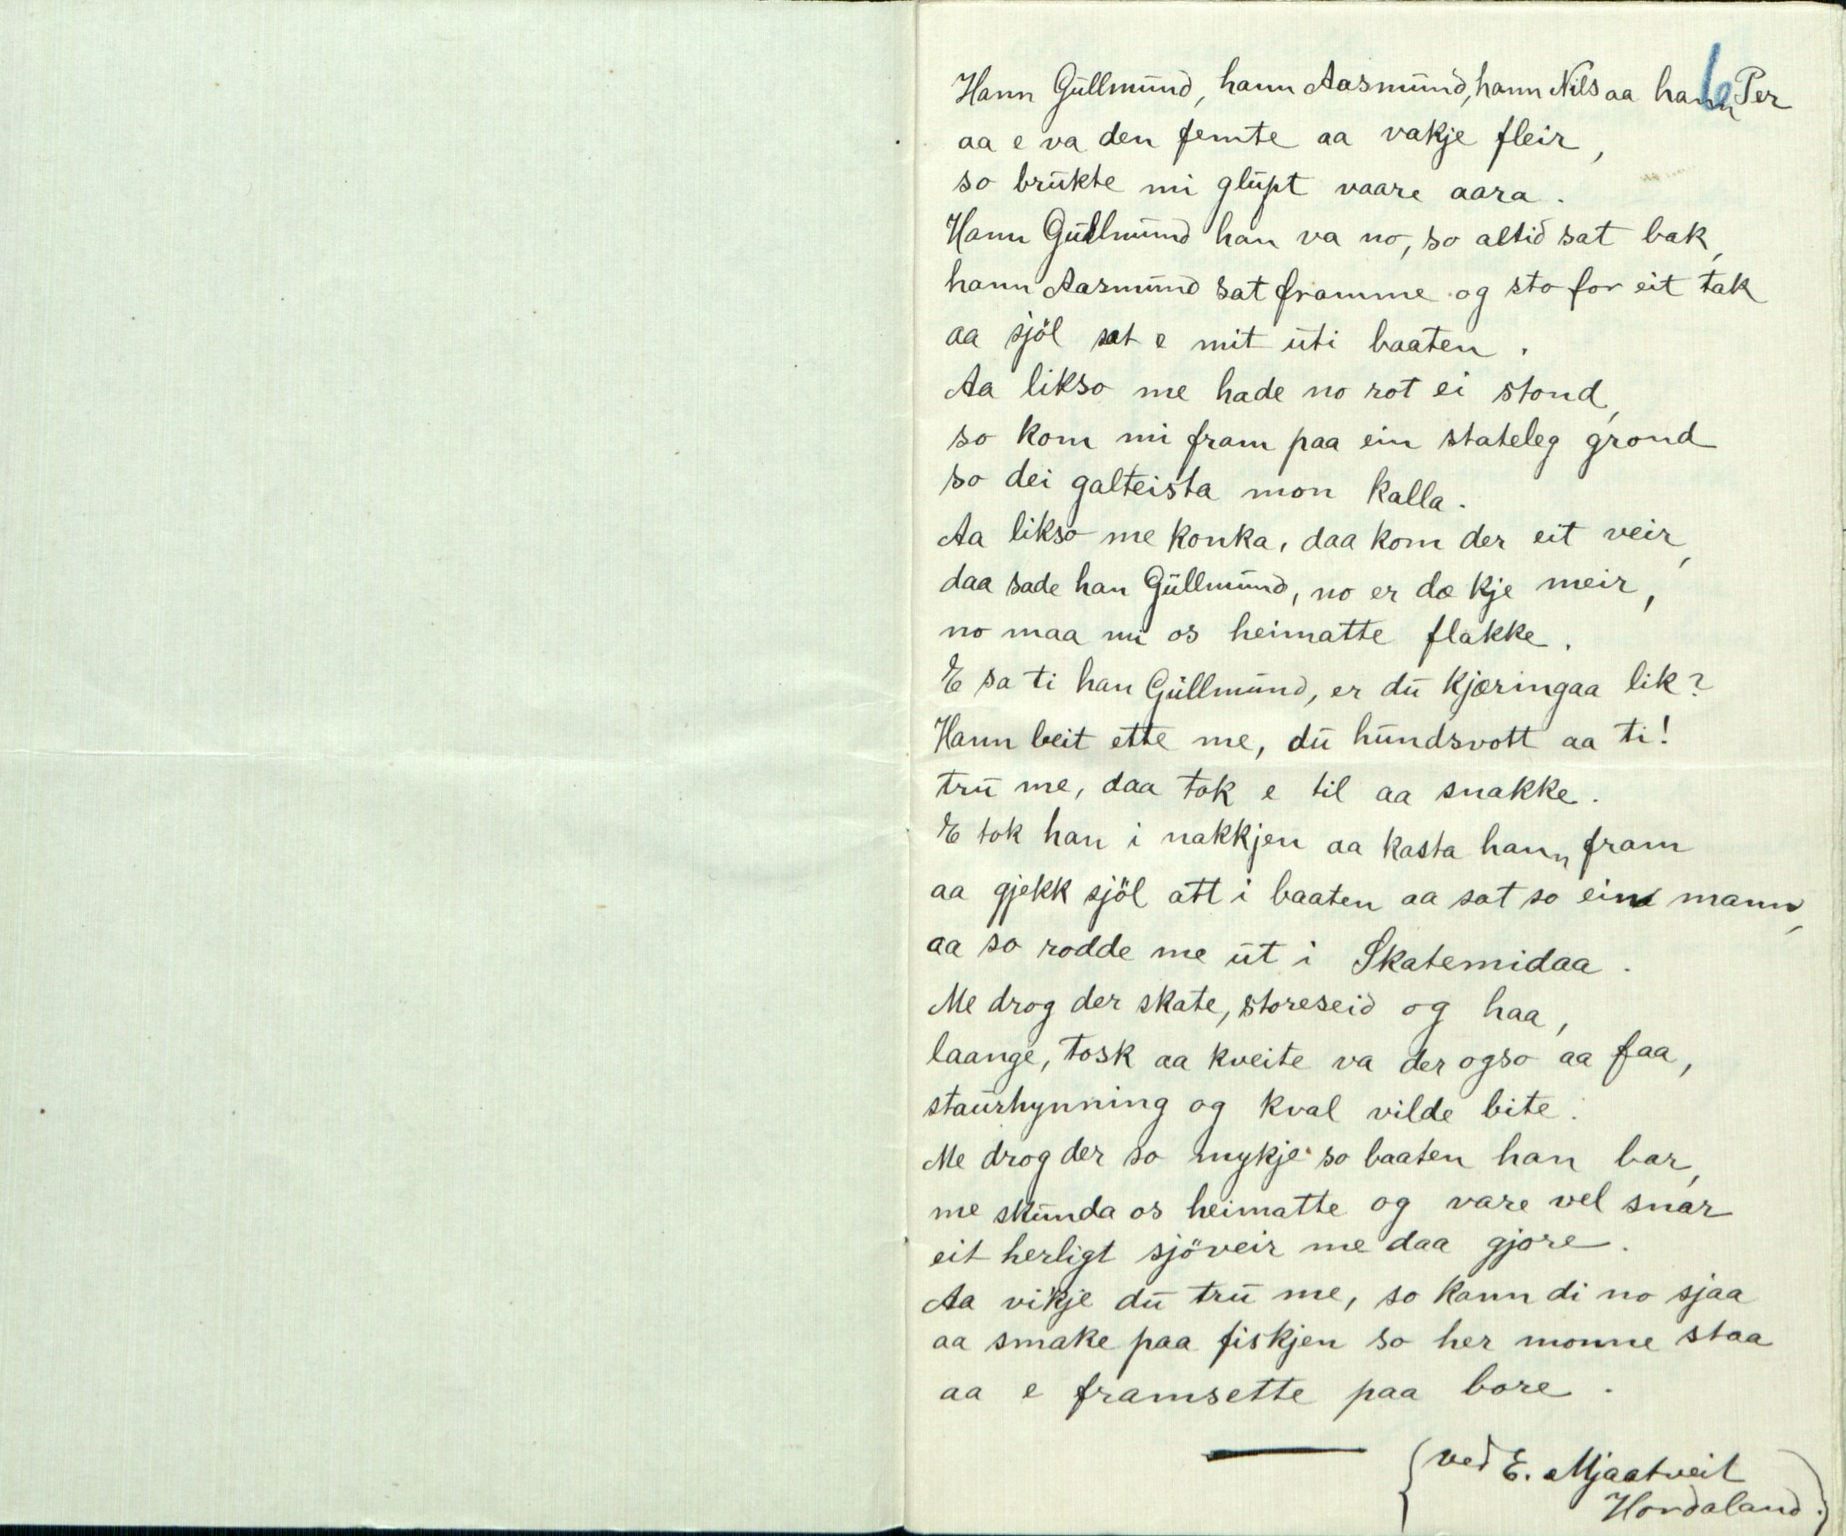 6
Hann Gullmund, hann Aasmund, hann Nils aa hann Per
aa e va den femte aa vakje fleir,
so brukte mi glupt vaare aara.
Hann Gullmund han va no, so altid sat bak,
hann Aasmund sat framme og sto for eit tak
aa sjöl sat e mit uti baaten.
Aa likso me hade no rot ei stond,
so kom mi fram paa ein stateleg grond
so dei galteista mon kalla.
Aa likso me konka, daa kom der eit veir,
daa sade han Gullmund, no er dæ kje meir,
no maa mi os heimatte flakke.
E sa ti han Gullmund, er du kjæringaa lik?
Hann beit ette me, du hundsvott aa ti!
tru me, daa tok e til aa snakke.
E tok han i nakkjen aa kasta hann fram
aa gjekk sjöl att i baaten aa sat so ein mann,
aa so rodde me ut i Skatemidaa.
Me drog der skate, storeseid og haa,
laange, tosk aa kveite va der ogso aa faa,
staurhynning og kval vilde bite.
Me drog der so mykje so baaten han bar,
me skunda os heimatte og vare vel snar
eit herligt sjöveir me daa gjore.
Aa vikje du tru me, so kann di no sjaa
aa smake paa fiskjen so her monne staa
aa e framsette paa bore.
(ved E. Mjaatveit
Hordaland.)